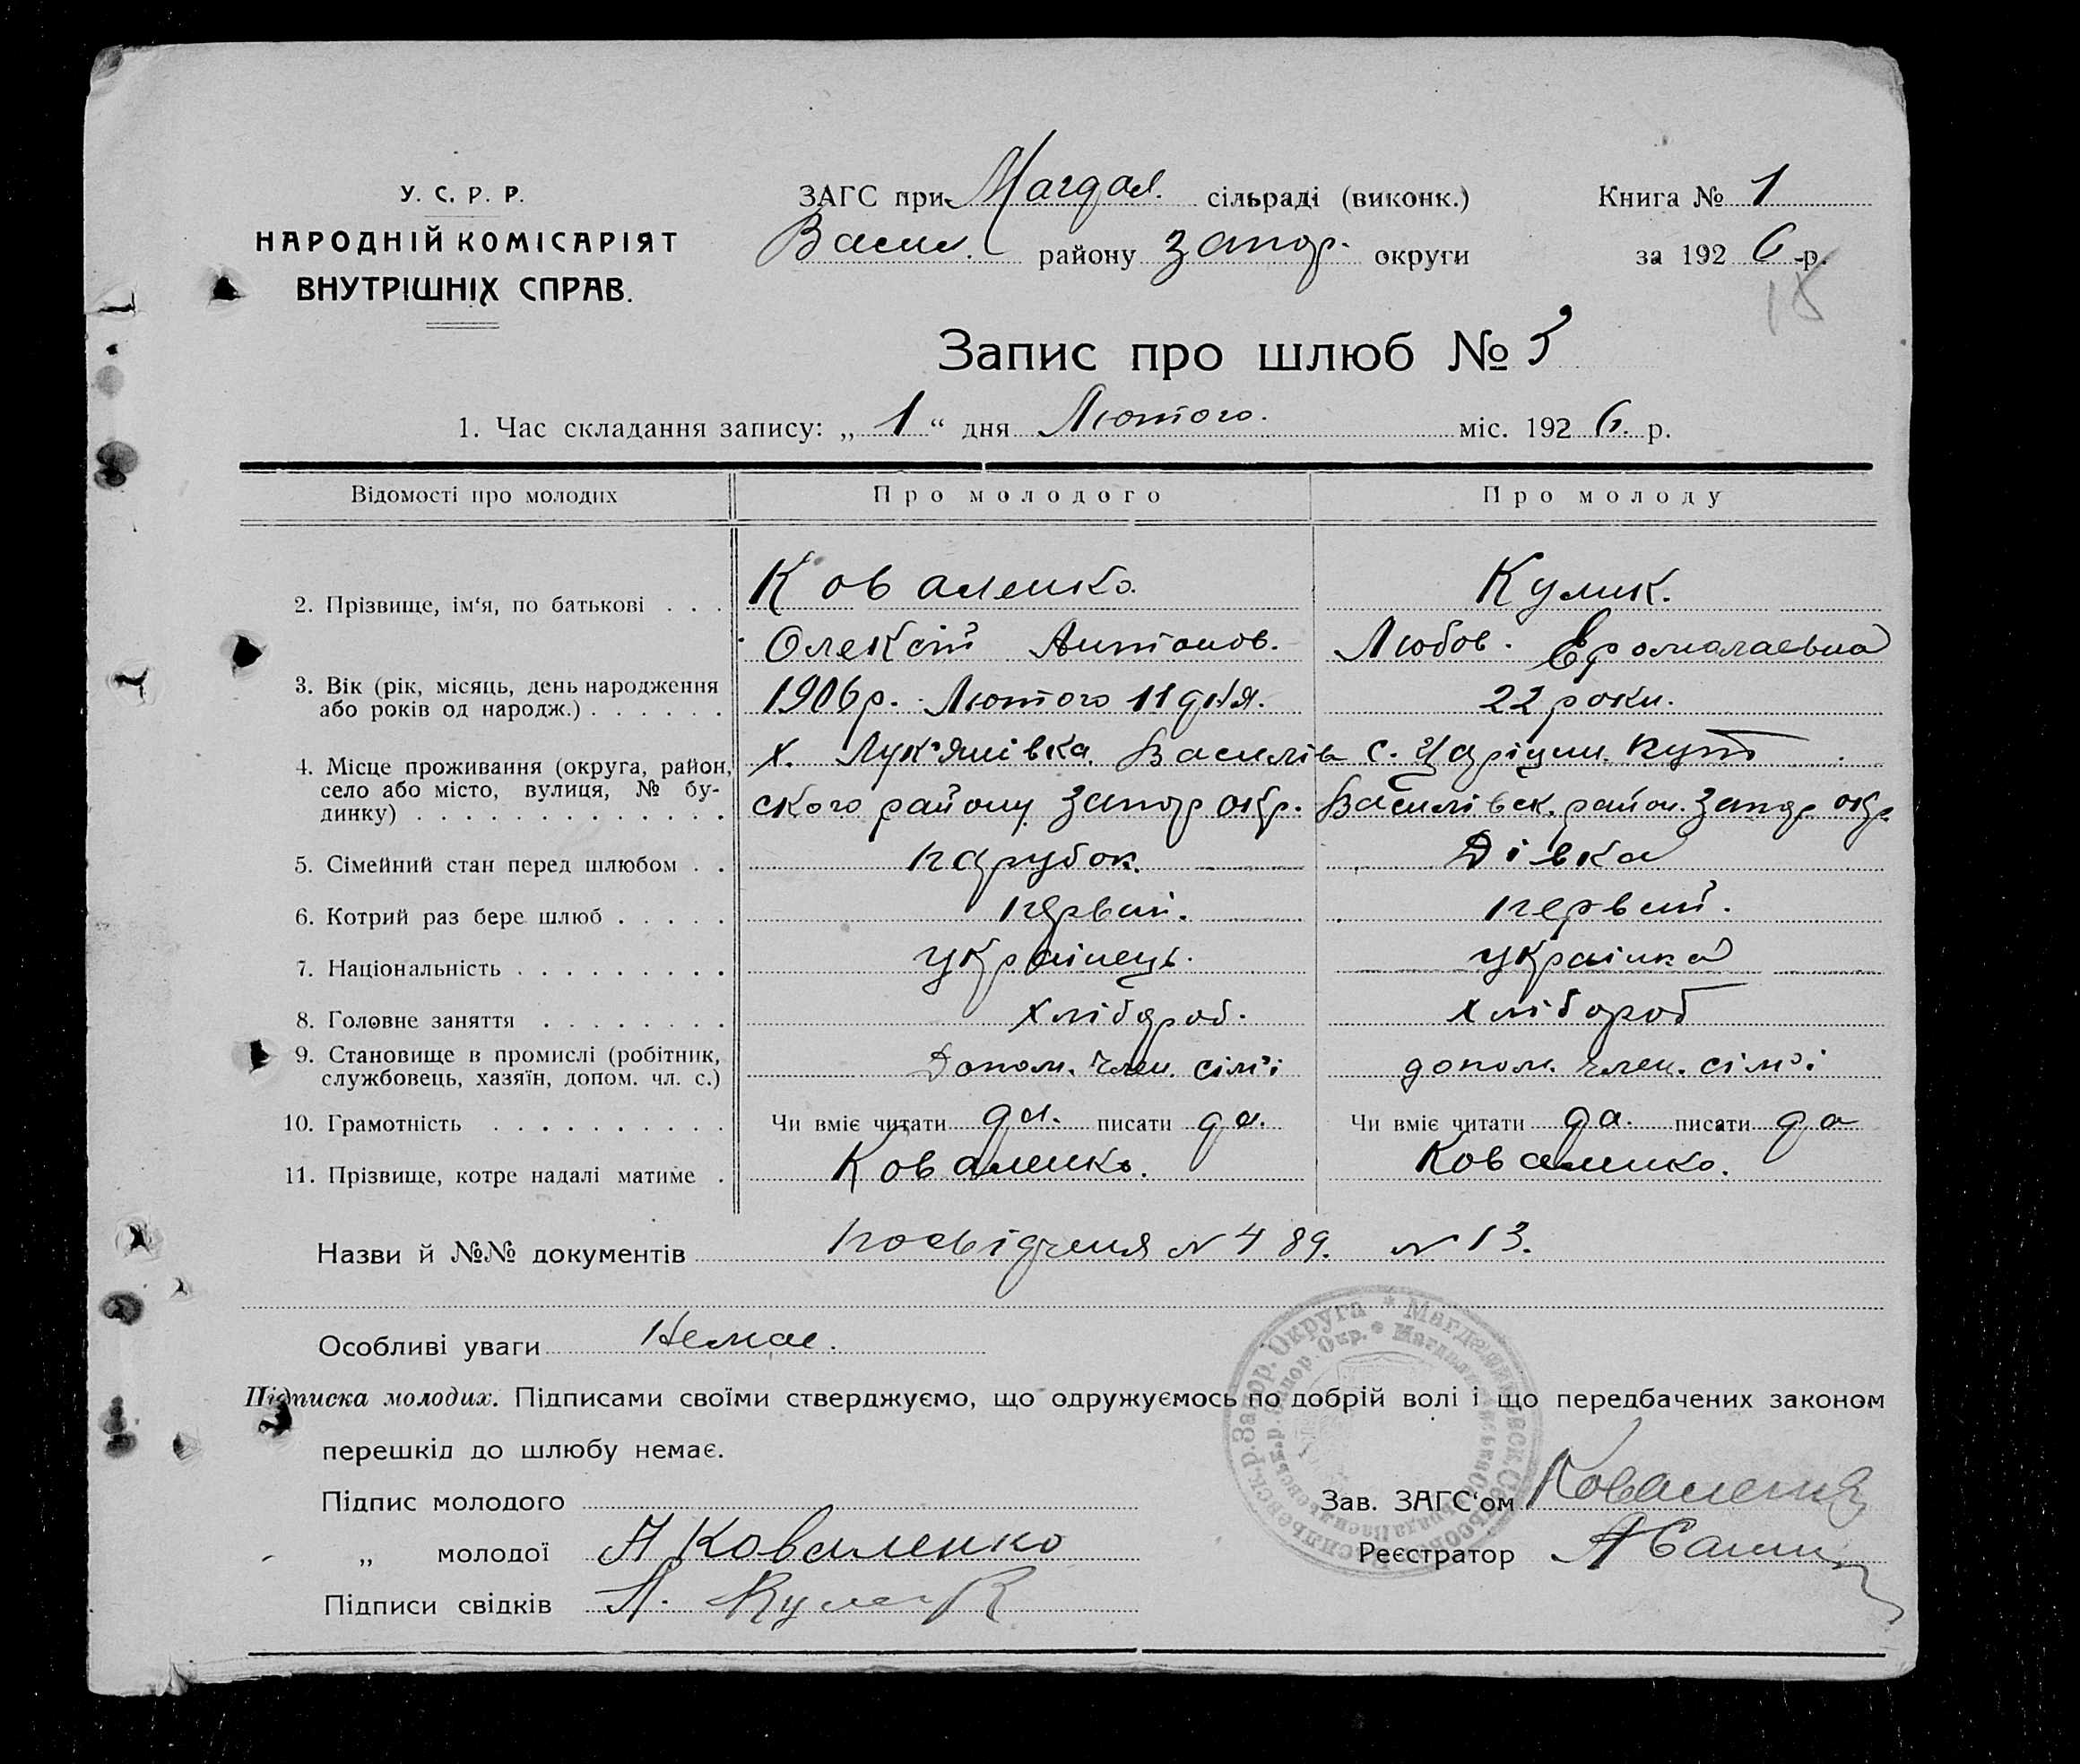 У. С. Р. Р.
НАРОДНІЙ КОМІСАРІЯТ
ВНУТРІШНІХ СПРАВ.
ЗАГС при Магдал. сільраді (виконк.)
Васил. району Запор. округи
Книга № 1
за 1926 р.
Запис про шлюб №
1. Час складання запису: „1“ дня Лютого. міс. 1926. р.
Відомості про молодих Про молодого Про молоду
2. Прізвище, ім‘я, по батькові . . . Коваленко. Кулик.
Олексій Антонов. Любов.
3. Вік (рік, місяць, день народження
або років од народж.) . . . . . . 1906р. Лютого 11 дня. 22 роки.
4. Місце проживання (округа, район,
село або місто, вулиця, № бу-
динку) . . . . . . . . . . . . .
х. Лук'янівка Василів с. Царіцин. Кут
ского району Запор окр. Василівск. район. Запор окр
5. Сімейний стан перед шлюбом . . парубок. Дівка
6. Котрий раз бере шлюб . . . . . первий. первий.
7. Національність . . . . . . . . . українець. українка
8. Головне заняття . . . . . . . . хлібороб. хлібороб
9. Становище в промислі (робітник,
службовець, хазяїн, допом. чл. с.) Допом. член. сім'ї допом. член. сім'ї
10. Грамотність . . . . . . . . . . Чи вміє читати да. писати да. Чи вміє читати да. писати да
11. Прізвище, котре надалі матиме . Коваленко. Коваленко.
Назви й №№ документів посвідченя № 489. № 13.
Особливі уваги Немає.
Підписка молодих. Підписами своїми стверджуємо, що одружуємось по добрій волі і що передбачених законом
перешкід до шлюбу немає.
Підпис молодого
„ молодої А Коваленко
Підписи свідків Л. Кулик
Зав. ЗАГС‘ом Коваленко
Реєстратор